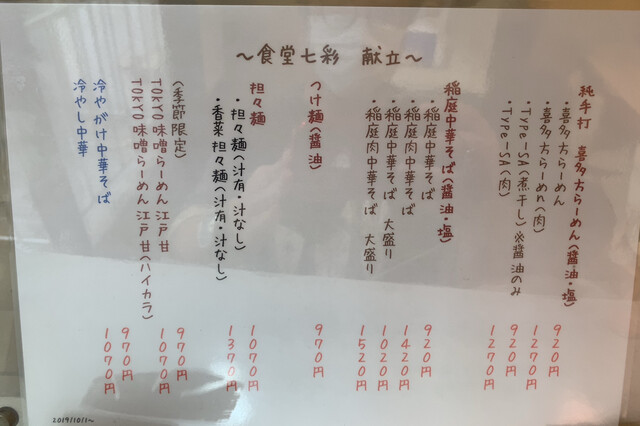 〜食堂七彩 献立〜
純手打 喜多方らーめん(醤油・塩)
・喜多方らーめん 920円
・喜多方らーめん(肉) 1270円
・Type-SA(煮干し)※醤油のみ 920円
・Type-SA(肉) 1270円
稲庭中華そば(醤油・塩)
・稲庭中華そば 920円
・稲庭肉中華そば 1420円
・稲庭中華そば 大盛り 1020円
・稲庭肉中華そば 大盛り 1520円
つけ麺(醤油) 970円
担々麺
・担々麺(汁有・汁なし) 1070円
・香菜担々麺(汁有・汁なし) 1370円
(季節限定)
TOKYO味噌らーめん江戸甘 970円
TOKYO味噌らーめん江戸甘(バイカラ) 1070円
冷やがけ中華そば 970円
冷やし中華 1070円
2019/10/1〜